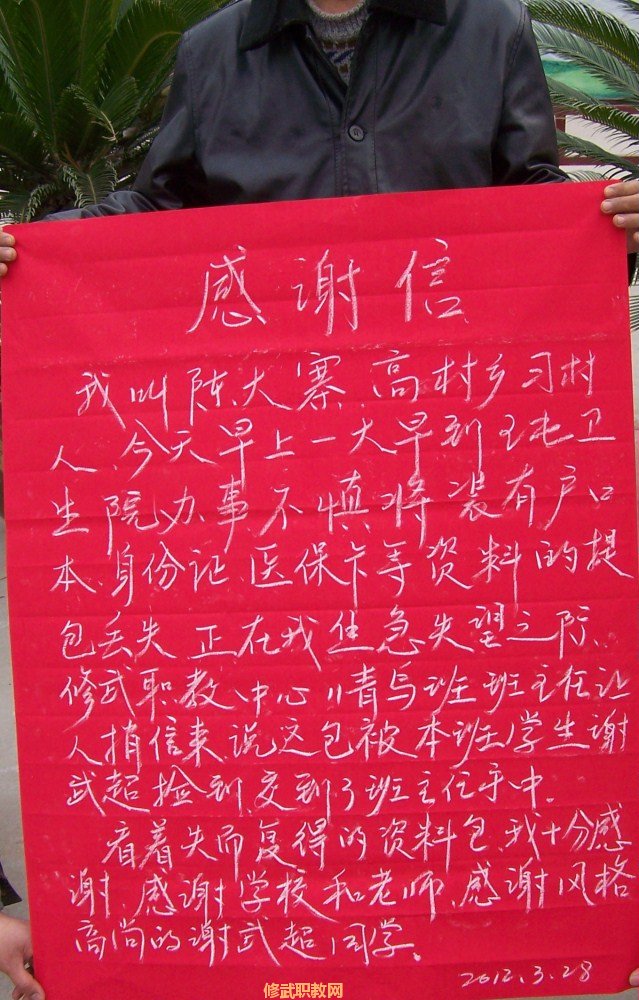 感谢信
我叫陈大寨、高村乡习村
人、今天早上一大早到王屯卫
生院办事不慎将装有户口
本、身份证、医保卡等资料的提
包丢失 正在我焦急失望之际、
修武职教中心 班班主任让
人捎信来说这包被本班学生谢
武超捡到交到了班主任手中。
看着失而复得的资料包、我十分感
谢、感谢学校和老师、感谢风格
高尚的谢武超同学。
2012.3.28
修武职教网